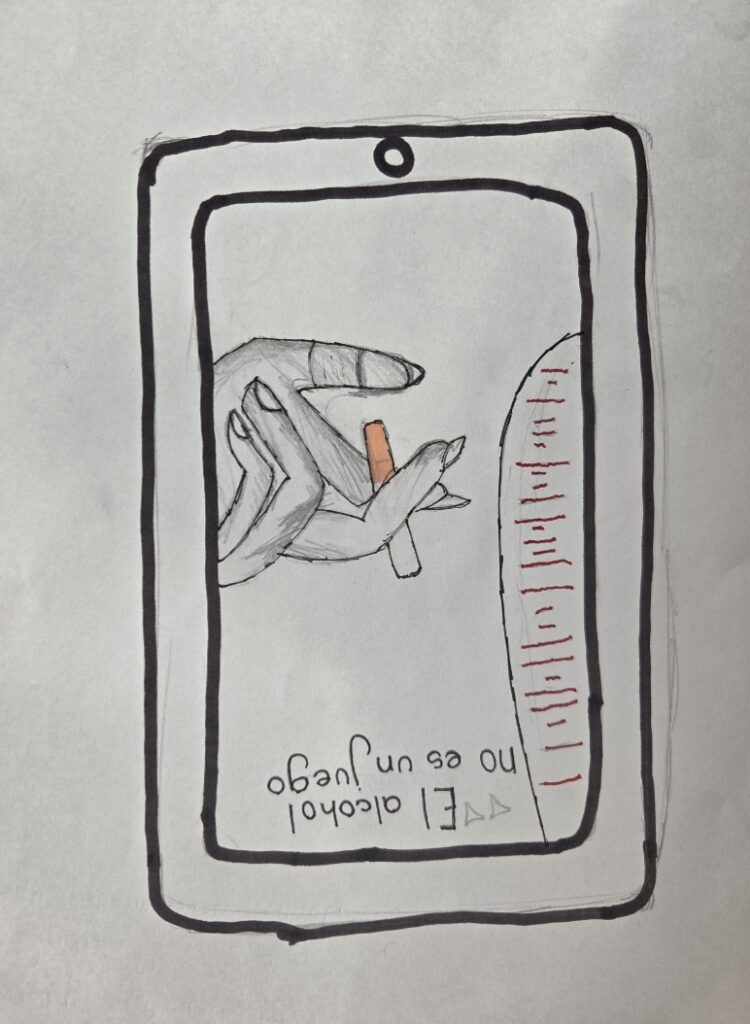 El alcohol
no es un juego